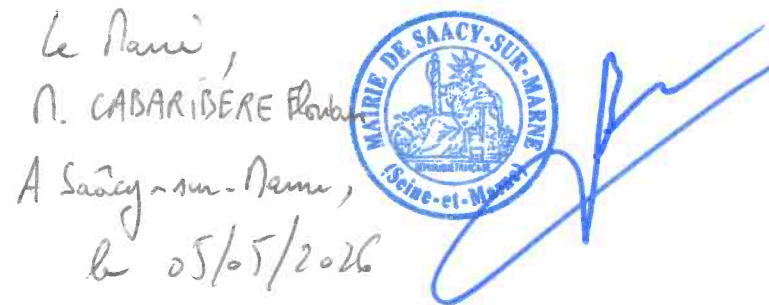 Le Maire,
M. CABARIBÈRE Florian
A Saâcy-sur-Marne,
le 05/05/2026
MAIRIE DE SAACY-SUR-MARNE
RÉPUBLIQUE FRANÇAISE
(Seine-et-Marne)